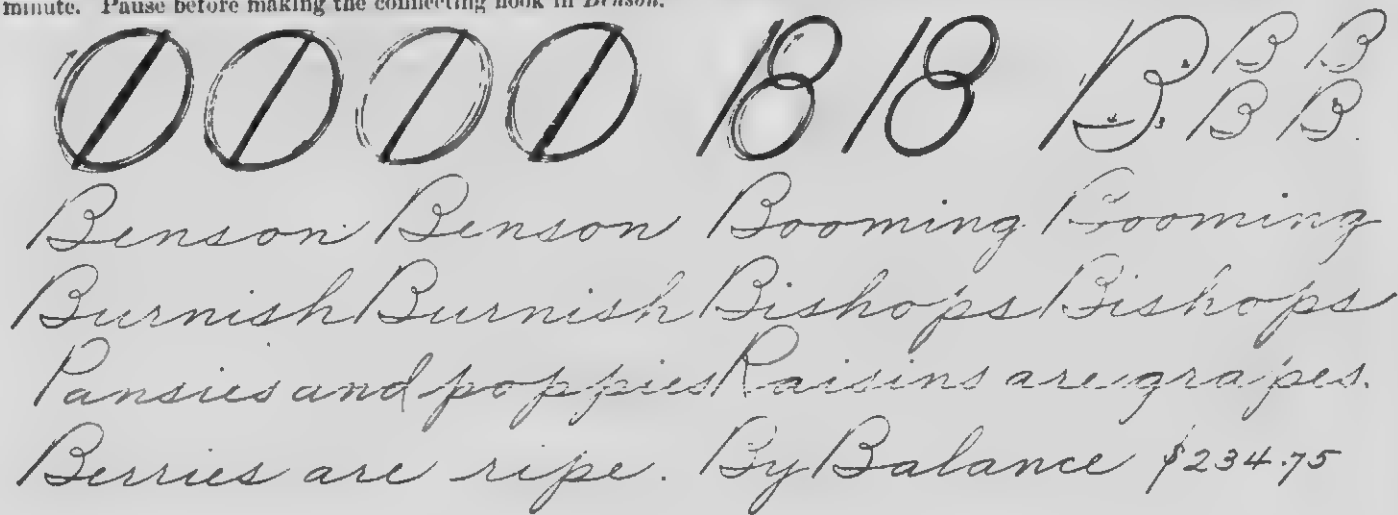 minute. Pause before making the connecting hook in Benson.
B B B B
B B B
Benson Benson Booming Booming
Burnish Burnish Bishops Bishops
Pansies and poppies Raisins are grapes.
Berries are ripe. By Balance $234.75